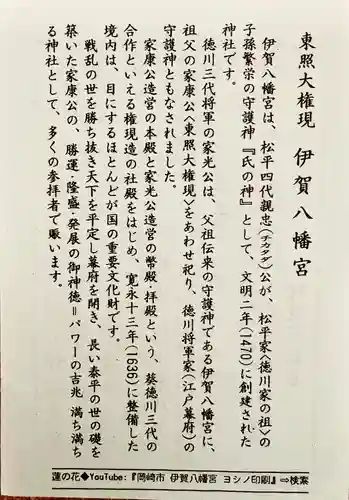 東照大権現 伊賀八幡宮
伊賀八幡宮は、松平四代親忠(チカタダ)公が、松平家〈徳川家の祖〉の
子孫繁栄の守護神『氏の神』として、文明二年(1470)に創建された
神社です。
徳川三代将軍の家光公は、父祖伝来の守護神である伊賀八幡宮に、
祖父の家康公〈東照大権現〉をあわせ祀り、徳川将軍家(江戸幕府)の
守護神ともなされました。
家康公造営の本殿と家光公造営の幣殿・拝殿という、葵徳川三代の
合作といえる権現造の社殿をはじめ、寛永十三年(1636)に整備した
境内は、目にするほとんどが国の重要文化財です。
戦乱の世を勝ち抜き天下を平定し幕府を開き、長い泰平の世の礎を
築いた家康公の、勝運・隆盛・発展の御神徳＝パワーの吉兆 満ち満ち
る神社として、多くの参拝者で賑います。
蓮の花◆YouTube:『岡崎市 伊賀八幡宮 ヨシノ印刷』⇨検索